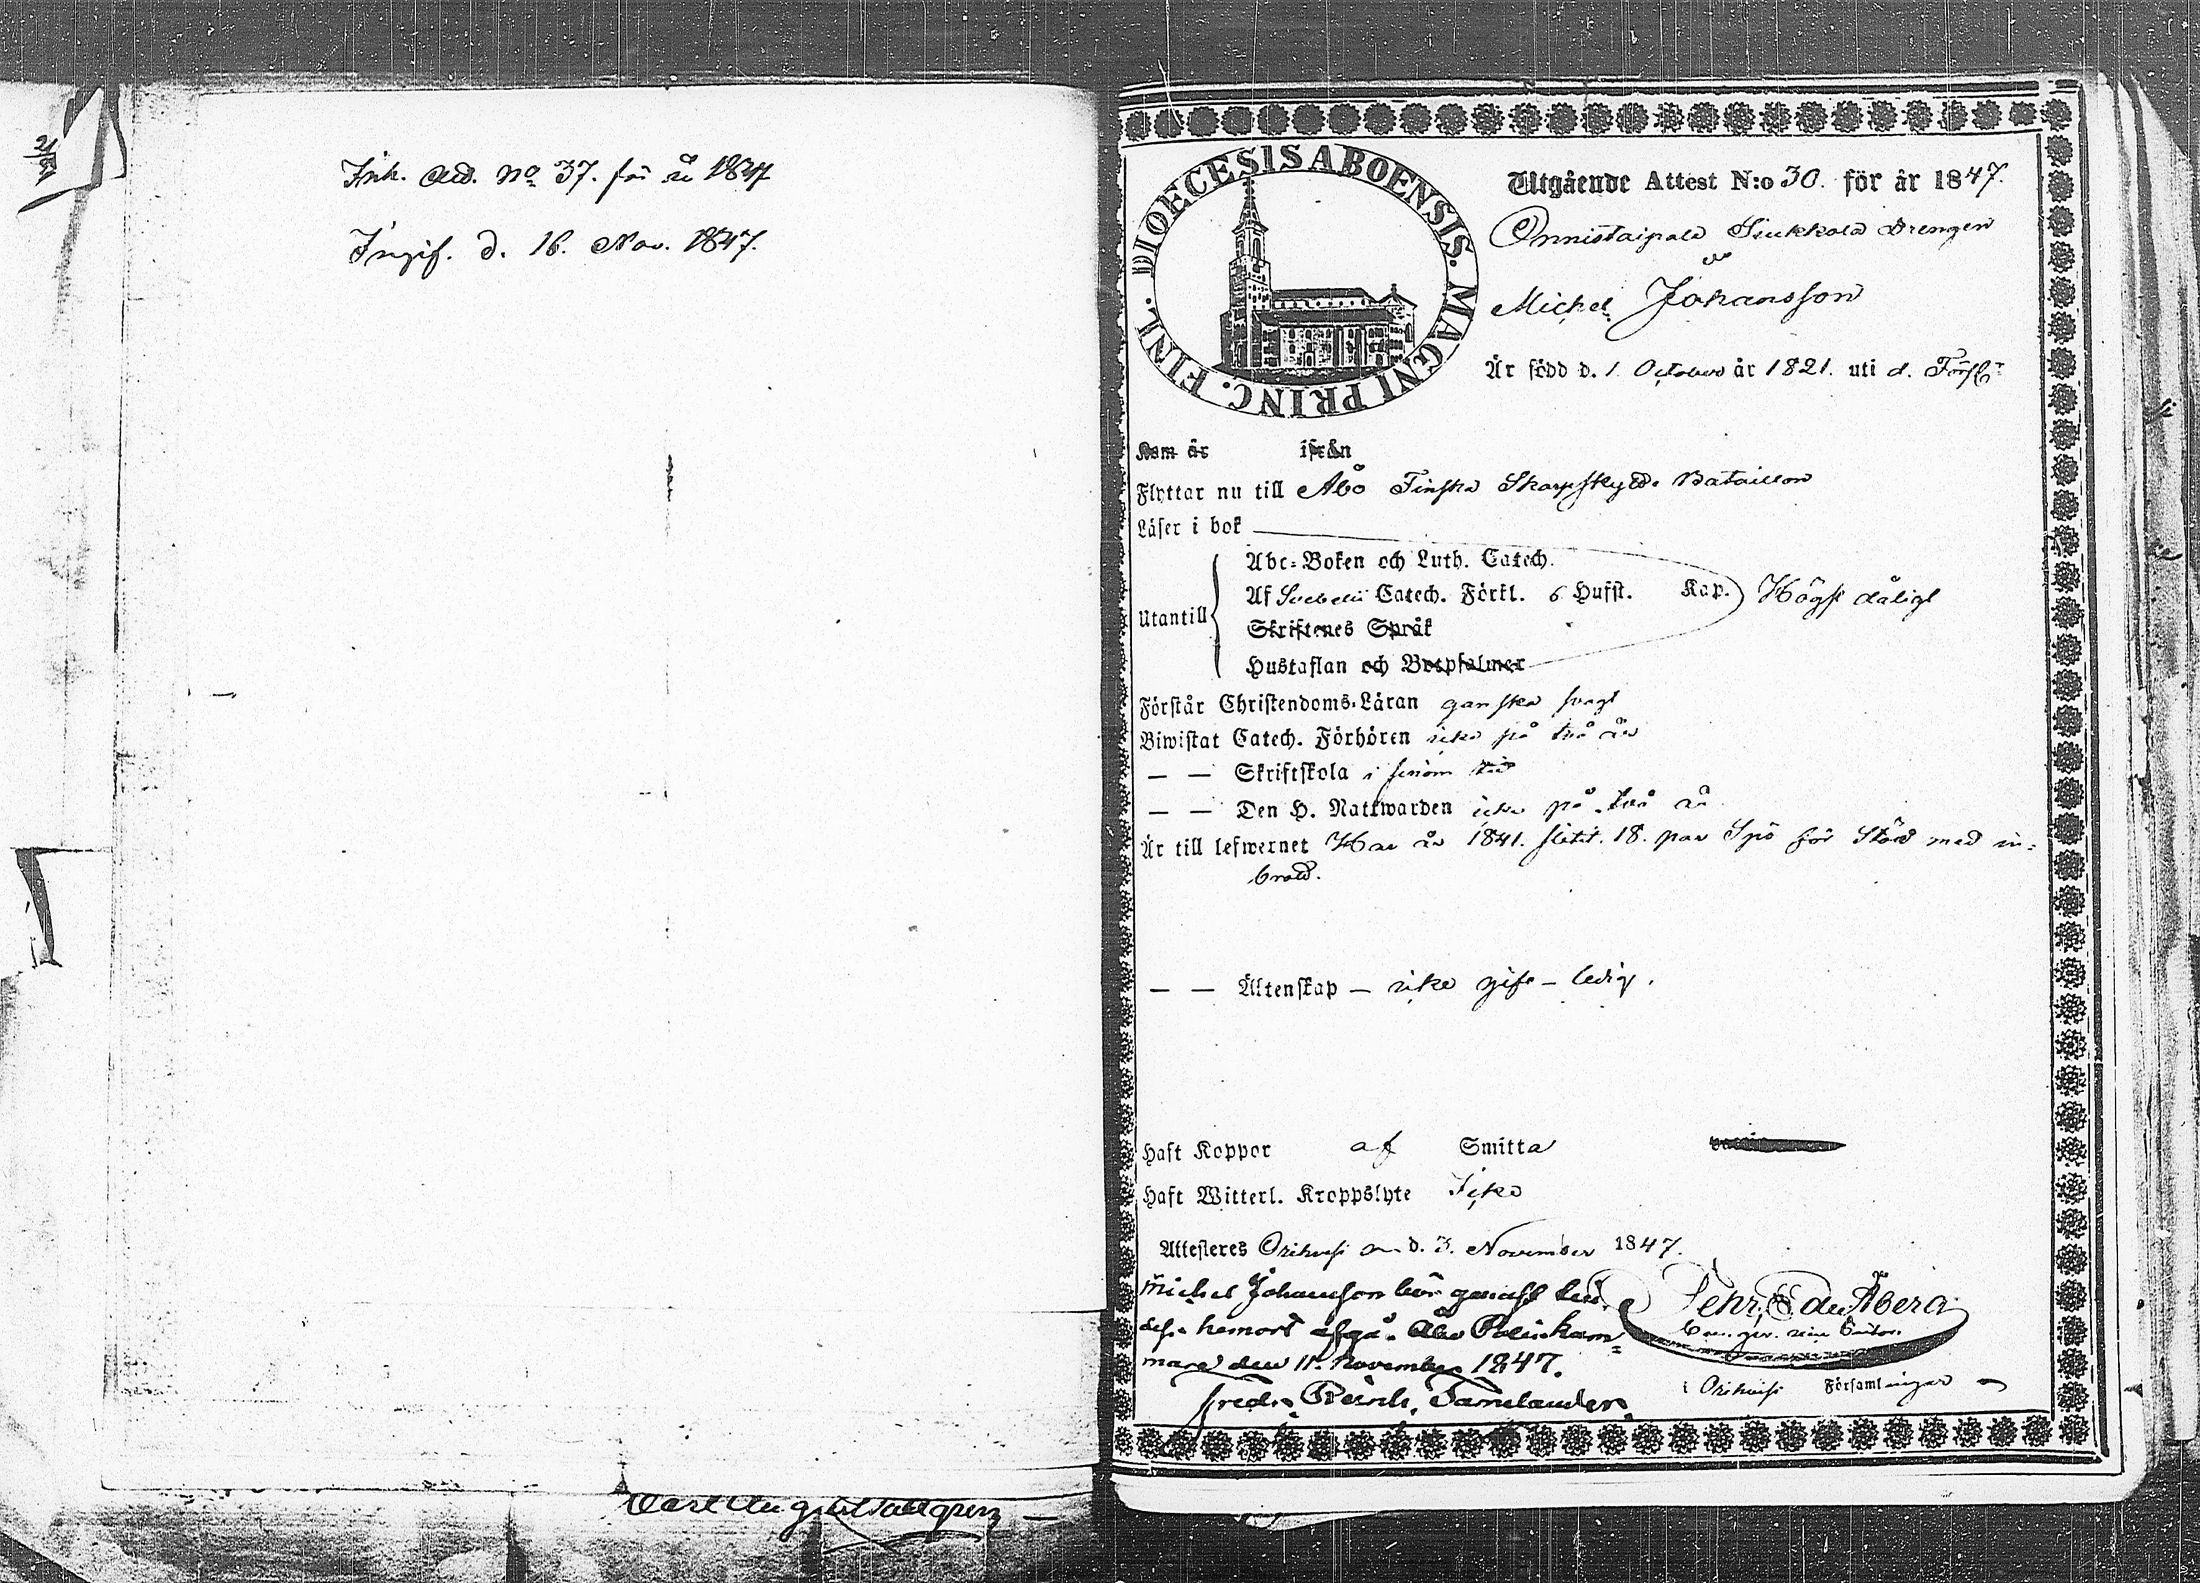 Ink. Att. No 37. för år 1847
Ingif. d. 16. Nov. 1847.
Carl August Tallgren
DIOECESIS ABOENSIS. MAGNI PRINC. FINL.
Utgående Attest N:o 30. för år 1847.
Onnistaipale Drengen
Michel Johansson
Är född d. 1 October år 1821. uti d. Förs.
Kom år ifrån
Flyttar nu till Åbo Finska Skarpskytte Bataillon
Läser i bok
Abc-Boken och Luth. Catech.
Utantill Af Svebelii Catech. Förkl. 6 Hufst. Kap. Högst dåligt
Skriftenes Språk
Hustaflan och Botpsalmer
Förstår Christendoms-Läran ganska svagt
Biwistat Catech. Förhören icke på två år
— — Skriftskola i sinom tid
— — Den H. Nattwarden icke på två år
Är till lefwernet Har år 1841. slitit. 18. par Spö för Stöld med in-
brott.
— — Äktenskap — icke gift — ledig.
Haft Koppor af Smitta
Haft Witterl. Kroppslyte Icke
Attesteres Orihvesi d. 3. November 1847.
Michel Johansson bör genast till
dess hemort afgå. Åbo Poliskam-
mare den 11. November 1847.
Fredr. Reinh. Tamelander.
Pehr Edv. Åberg
i Orihvesi Församlingar